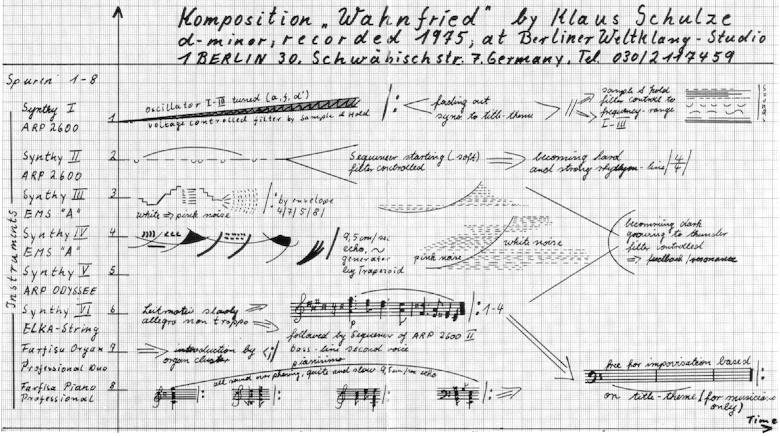 Komposition „Wahnfried" by Klaus Schulze
d-minor, recorded 1975, at Berliner Weltklang-Studio
1 BERLIN 30. Schwäbischstr. 7. Germany. Tel. 030/2117459
Spuren 1-8
Instruments
Synthy I
ARP 2600
1
oscillator I-III tuned (a, f, d')
voltage controlled filter by Sample & Hold
fading out
sync to title-theme
sample & hold
filter control to
frequency range
I-III
Synthy II
ARP 2600
2
Sequencer starting (soft)
filter controlled
becoming hard
and strong rhythm-line 4/4
Synthy III
EMS "A"
3
white ⇒ pink noise
by envelope
4/7/5/8/
Synthy IV
EMS "A"
4
9,5 cm/sec
echo, ~
generator
by Trapezoid
pink noise
white noise
becomming dark
growing to thunder
filter controlled
⇒ feedback/resonance
Synthy V
ARP ODYSSEE
5
Synthy VI
ELKA-String
6
Leitmotiv slowly
allegro non troppo
p
1-4
followed by Sequencer of ARP 2600 II
bass-line second voice
Farfisa Organ
Professional Duo
9
⇒ introduction by
organ cluster
pianissimo
Farfisa Piano
Professional
8
all sound over phasing, quite and slow 9,5cm/sec echo
free for improvisation based
on title-theme (for musicians
only)
Time